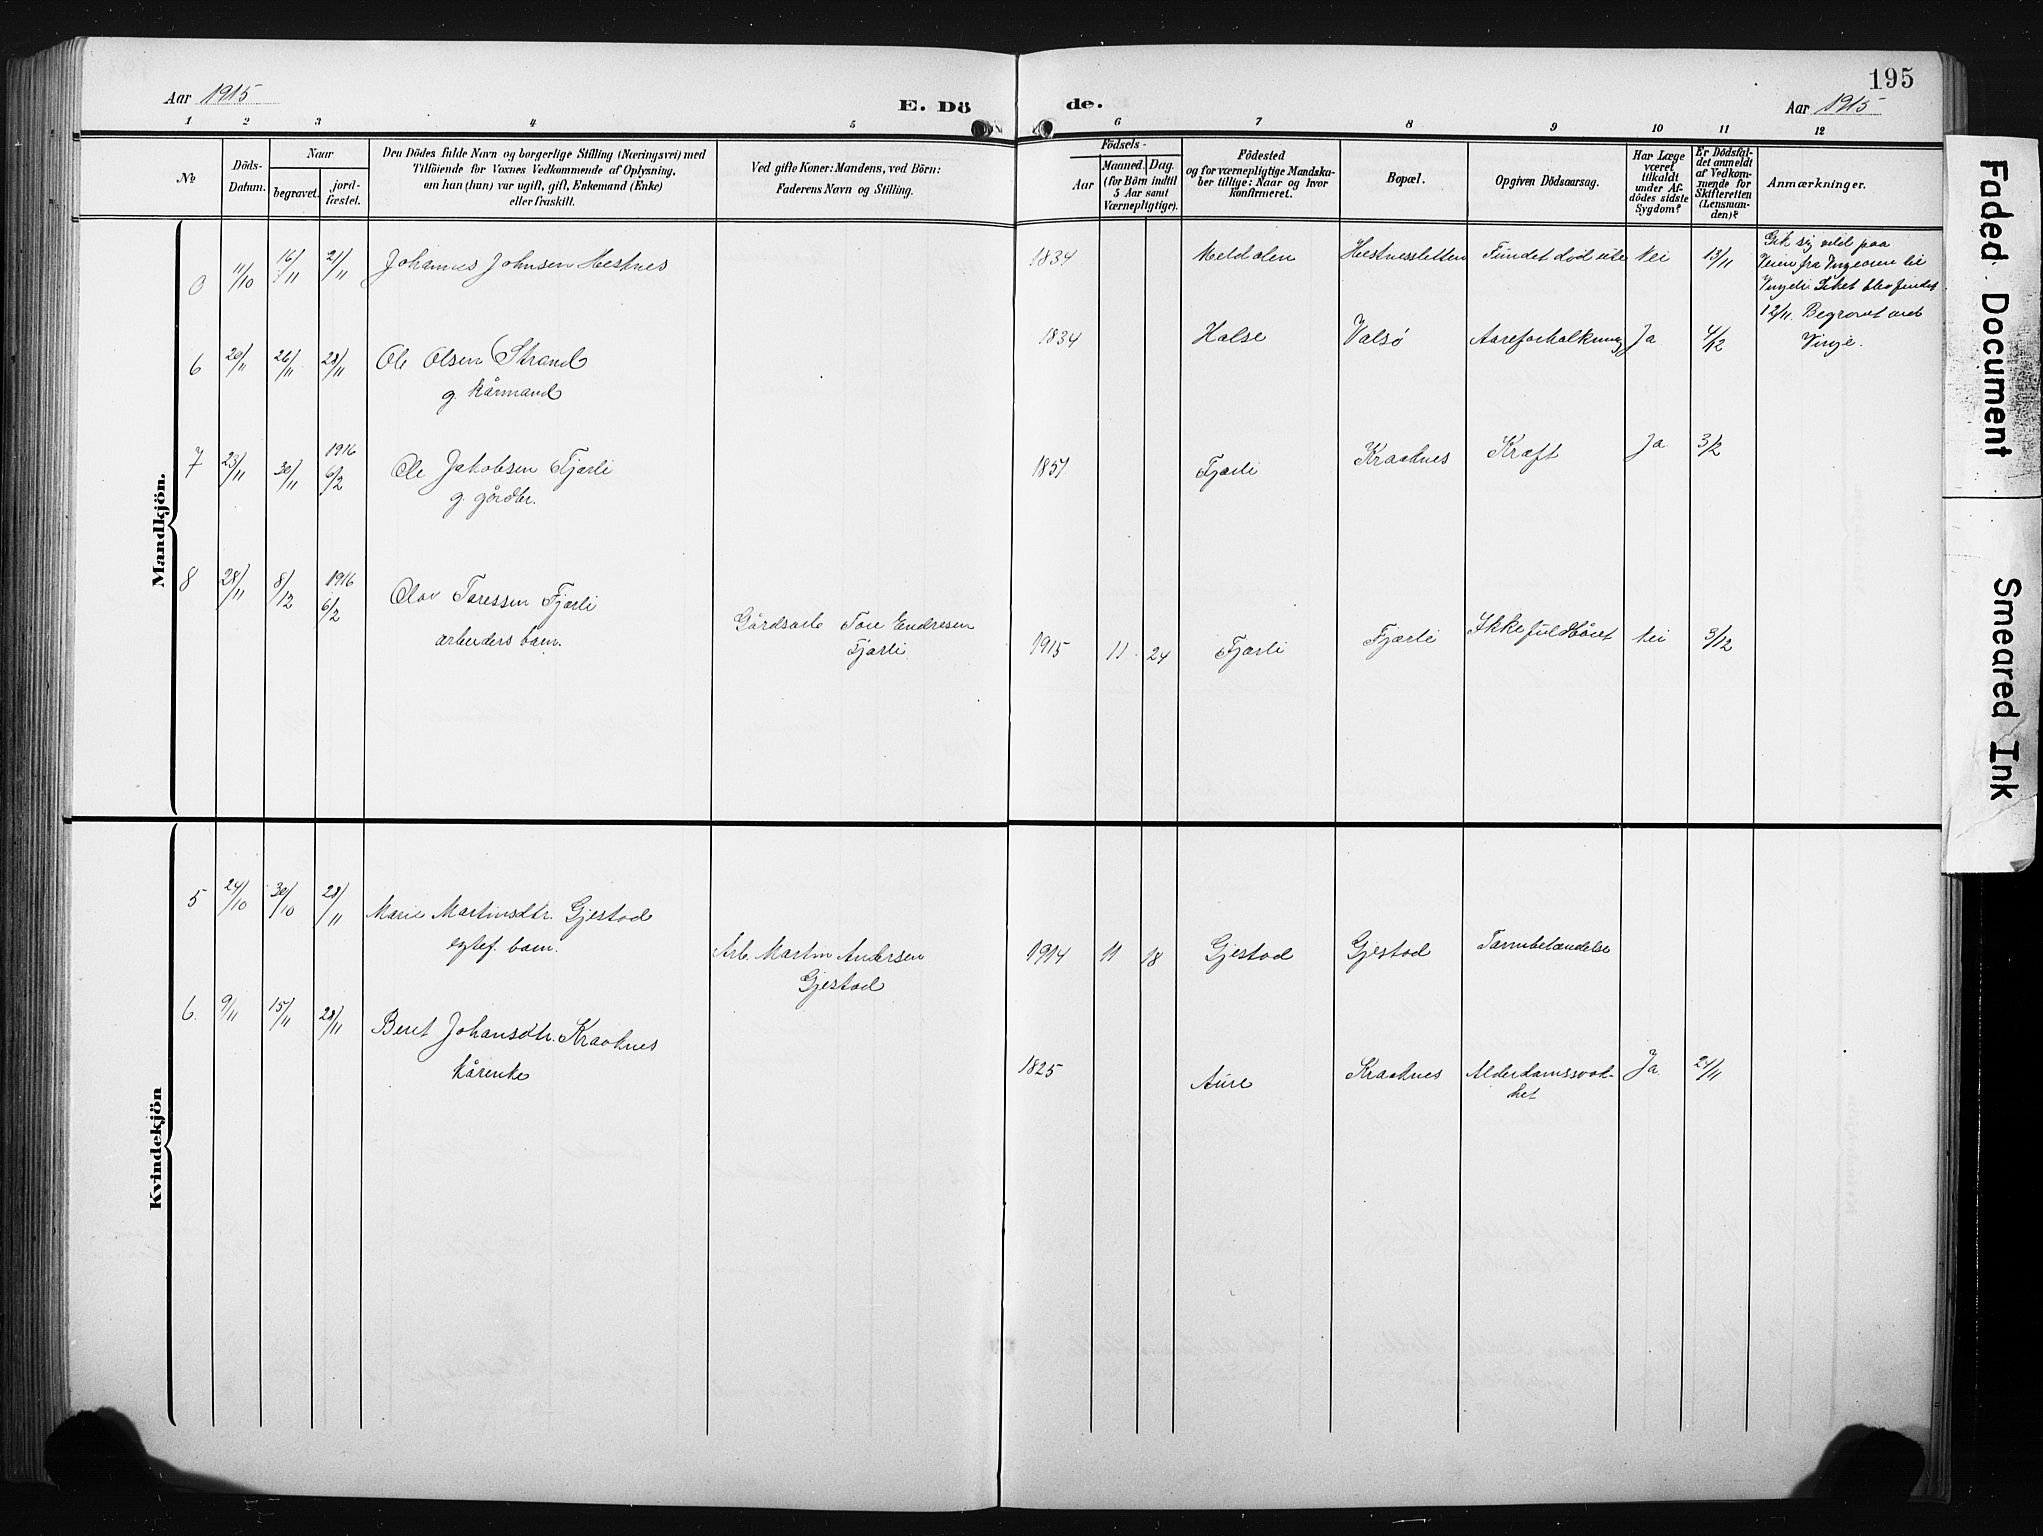 Aar 1915
E. Dö
de.
195
Aar 1915
1 2 3 4 5 6 7 8 9 10 11 12
№
Döds-
Datum.
Naar
begravet.
jord-
fæstet.
Den Dödes fulde Navn og borgerlige Stilling (Næringsvei) med
Tilföiende for Voxnes Vedkommende af Oplysning,
om han (hun) var ugift, gift, Enkemand (Enke)
eller fraskilt.
Ved gifte Koner: Mandens, ved Börn:
Faderens Navn og Stilling.
Födsels-
Aar
Maaned.
Dag.
(for Börn indtil
5 Aar samt
Værnepligtige).
Födested
og for værnepligtige Mandska-
ber tillige: Naar og hvor
konfirmeret.
Bopæl.
Opgiven Dödsaarsag.
Har Læge
været
tilkaldt
under Af-
dödes sidste
Sygdom?
Er Dödsfal-
det anmeldt
af Vedkom-
mende for
Skifteretten
(Lensman-
den)?
Anmærkninger.
Mandkjön.
11/10 16/11 21/11 Johannes Johnsen Hestnes 1834 Meldalen Hestnessletten Fundet død ute Nei 13/11
Gik sig vild paa
Veien fra Vingeøren til
Vingeli Liket blev fundet
12/11. Begravet ved
Vinje.
6 20/11 26/11 28/11 Ole Olsen Strand 1834 Halse Valsø Aareforkalkning Ja 4/12
g. kårmand
7 23/11 30/11 1916 6/2 Ole Jakobsen Fjærli 1851 Fjærli Kraaknes Kræft Ja 3/2
g. gårdbr.
8 28/11 8/12 1916 6/2 Olav Toressen Fjærli
arbeiders barn.
Gårdsarb Tore Endresen
Fjærli
1915 11 24 Fjærli Fjærli Ikke fuldbåret Nei 3/12
Kvindekjön
5 24/10 30/10 28/11 Marie Martinsdtr. Gjestad
egtef. barn.
Arb. Martin Andersen
Gjestad
1914 11 18 Gjestad Gjestad Tarmbetændelse
6. 9/11 15/11 28/11 Beret Johansdtr. Kraaknes
kårenke
1825 Aure Kraaknes Alderdomssvak-
het
Ja 24/11
Faded Document
Smeared Ink